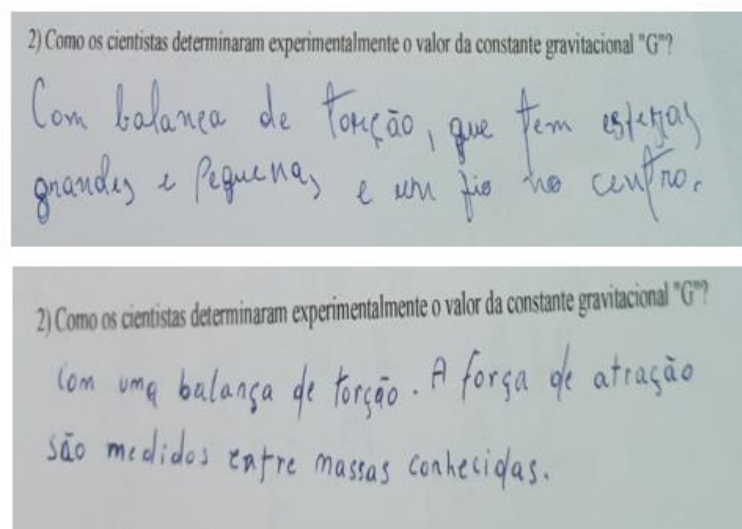 2) Como os cientistas determinaram experimentalmente o valor da constante gravitacional "G"?
Com balança de Torção, que tem esferas
grandes e Pequenas e um fio no centro.
2) Como os cientistas determinaram experimentalmente o valor da constante gravitacional "G"?
Com uma balança de torção. A força de atração
são medidos entre massas conhecidas.